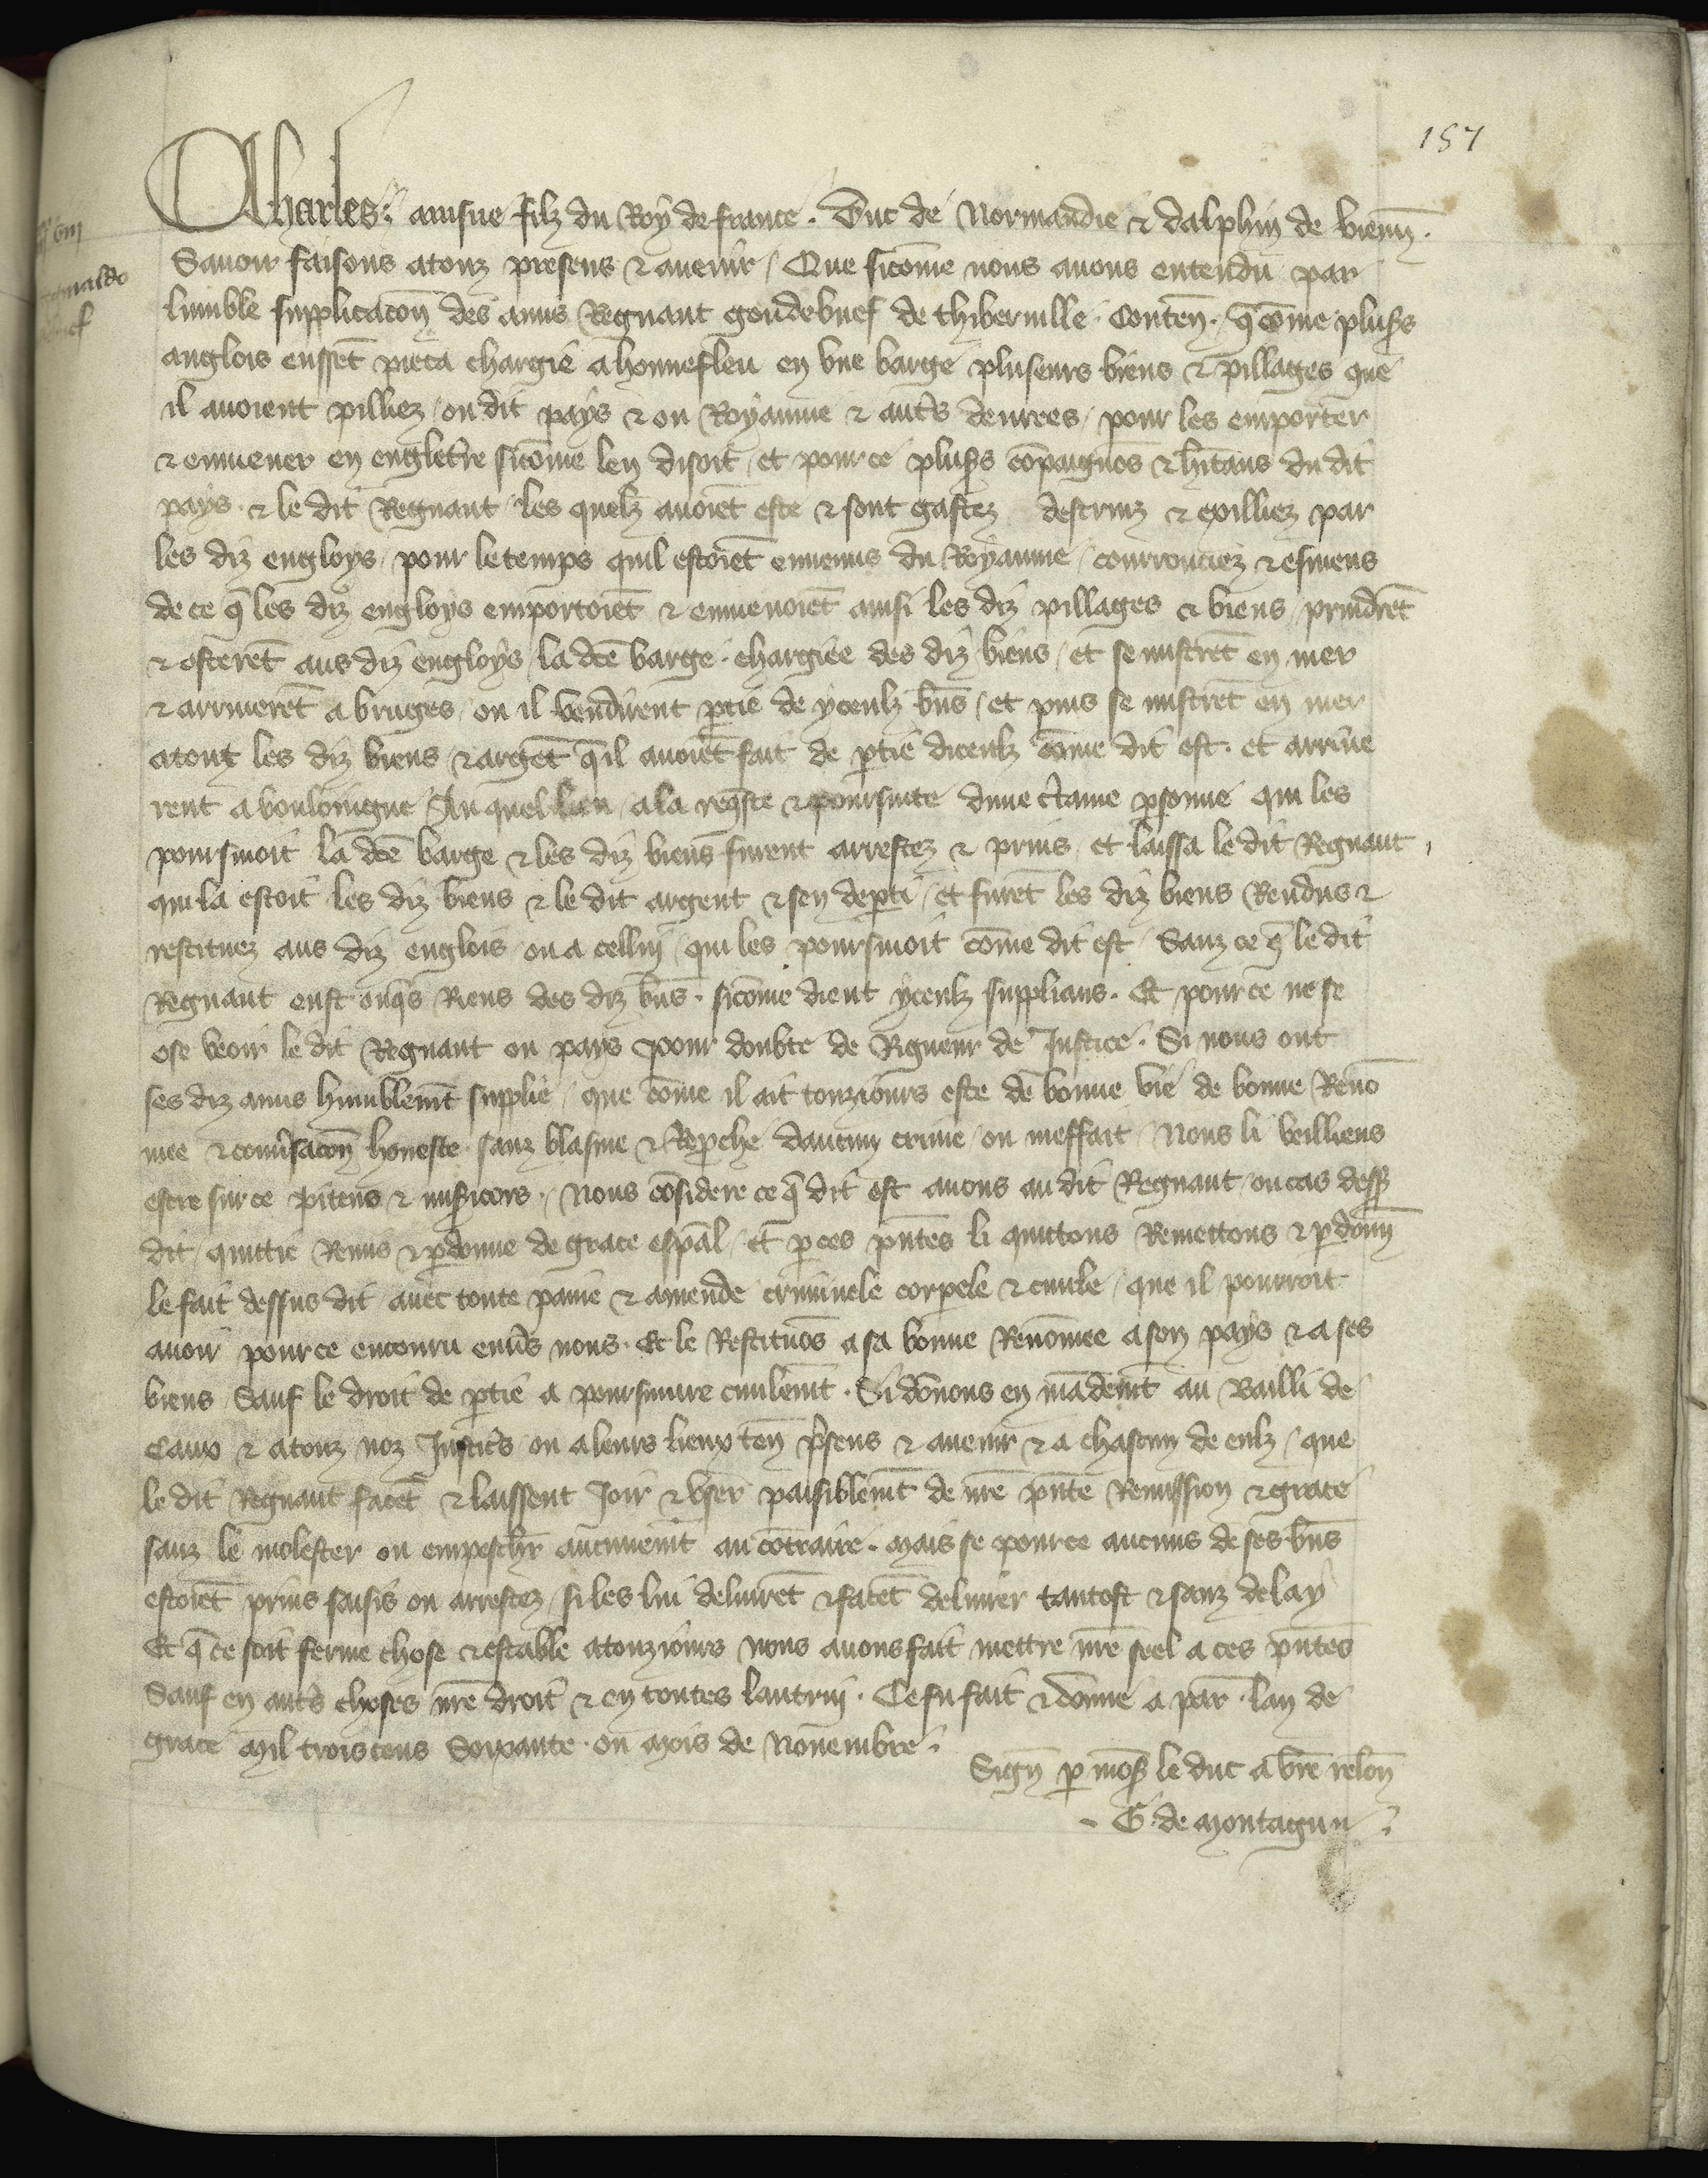 157
Charles ainsne filz du Roy de france . Duc de Normandie & dalphin de vienn̄ .
Savoir faisons a touz presens & avenir / Que sicōme nous avons entendu par
lumble supplicacōn des amis Regnaut goudebuef de thiberville . Conten̄ . q̄ cōme plusrs
anglois eussēt pieca chargie a honnefleu en une barge pluseurs biens & pillages que
il avoient pilliez ou dit pays & ou Royaume & autrs denrees / pour les emporter
& enmener en engletrre sicōme len disoit / et pour ce plusrs cōpaignōs & hītans du dit
pays . & le dit Regnaut / les quelz avoiēt este & sont gastez destruiz & exilliez par
les diz engloys / pour le temps quil estoiēt ennemis du Royaume / courrouciez & esmeus
de ce q̄ les diz engloys emportoiēt & enmenoiēt ainsi les diz pillages & biens / prindrēt
& osterēt aus diz engloys / la dcē barge . chargiee des diz biens / et se mistrēt en mer
& arriverēt a bruges / ou il vendirent ptie de yceulz bn̄s / et puis se mistrēt en mer
atout les diz biens & argēt q̄ il avoiēt fait de ptie diceulz cōme dit est . et arrive
rent a bouloingne / Au quel lieu / a la reqste & poursuite dune ctaine psonne qui les
poursuioit la dcē barge & les diz biens furent arrestez & prins / et laissa le dit Regnaut /
qui la estoit les diz biens & le dit argent & sen depti / et furēt les diz biens Rendus &
restituez aus diz englois / ou a cellui / qui les poursuioit cōme dit est / Sanz ce q̄ le dit
Regnaut eust onqs Riens des diz bn̄s . sicōme dient yceulz supplians . Et pour ce ne se
ose veoir le dit Regnaut ou pays pour doubte de Rigueur de Justice . Si nous ont
ses diz amis humblemt supplie / que cōme il ait touziours este de bonne vie de bonne Renō
mee & conversacōn honeste . sanz blasme & Reproche daucun crime / ou meffait / Nous li veilliens
estre sur ce piteus & misricors . Nous cōsidere ce q̄ dit est avons au dit Regnaut / ou cas dess
dit / quittie Remis & pdonne de grace esp̄al / et p ces pn̄tes li quittons Remettons & pdonn̄
le fait dessus dit / avec toute paine & amende criminele corpele & civile / que il pourroit
avoir pour ce encouru envrs nous . Et le Restituōs a sa bonne Renōmee a son pays & a ses
biens / Sauf le droit de ptie a poursuivre civilemt . Si dōnons en mādemt au Bailli de
Caux & a touz noz Justicrs ou a leurs lieux ten̄ psens & avenir & a chascun de eulz / que
le dit Regnaut facēt & laissent Joir & user paisiblemt de nrē pn̄te Remission & grace
sanz le molester ou empeschr aucunemt au cōtraire . Mais se pour ce aucuns de ses bn̄s
estoiēt prins saisis ou arrestez / si les lui delivrēt & facēt delivrer tantost & sanz delay
Et q̄ ce soit ferme chose & estable a touziours nous avons fait mettre nrē seel a ces pn̄tes
Sauf en autrs choses nrē droit & en toutes lautrui . Ce fu fait & dōnne a par . lan de
grace Mil troiscens Soixante . ou Mois de Novembre .
Sign̄ p mons le duc a vrē relōn
G. de Montagu